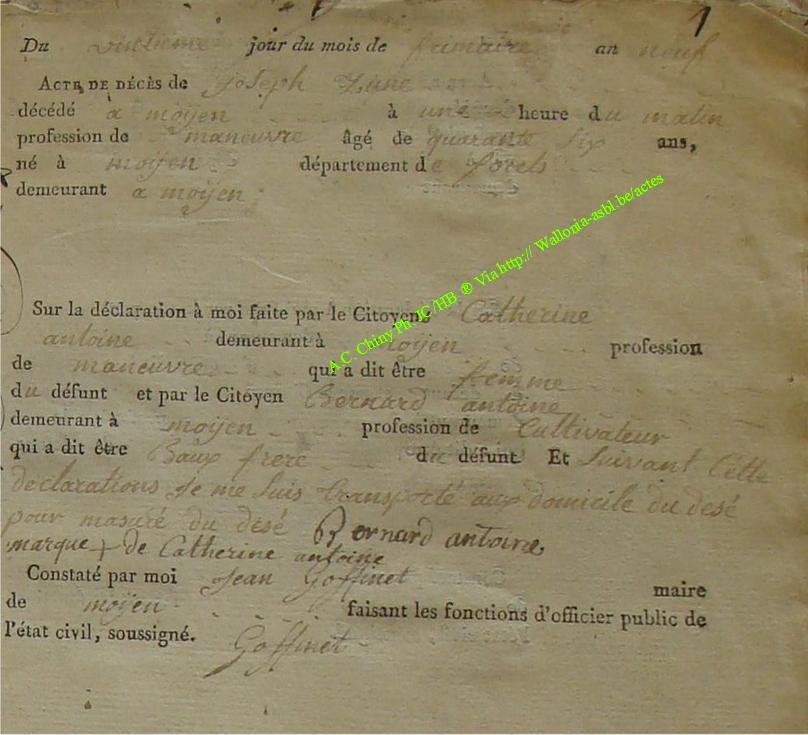 1
Du vintieme jour du mois de frimaire an neuf
ACTE DE DÉCÈS de Joseph Zune
décédé a moÿen à une heure du matin
profession de maneuvre âgé de quarante six ans,
né à moÿen département de forets
demeurant a moÿen
Sur la déclaration à moi faite par le Citoyen Catherine
antoine demeurant à moÿen profession
de maneuvre qui a dit être femme
du défunt et par le Citoyen Bernard antoine
demeurant à moÿen profession de Cultivateur
qui a dit être Baux frere du défunt Et Suivant Cette
declarations Je me suis transporté aux domicile du desé
pour masuré du desé Bernard antoine
marque + de Catherine antoine
Constaté par moi Jean Goffinet maire
de moÿen faisant les fonctions d'officier public de
l'état civil, soussigné. Goffinet
A.C. Chiny Ph JC /HB ® Via http:// Wallonia-asbl.be/actes